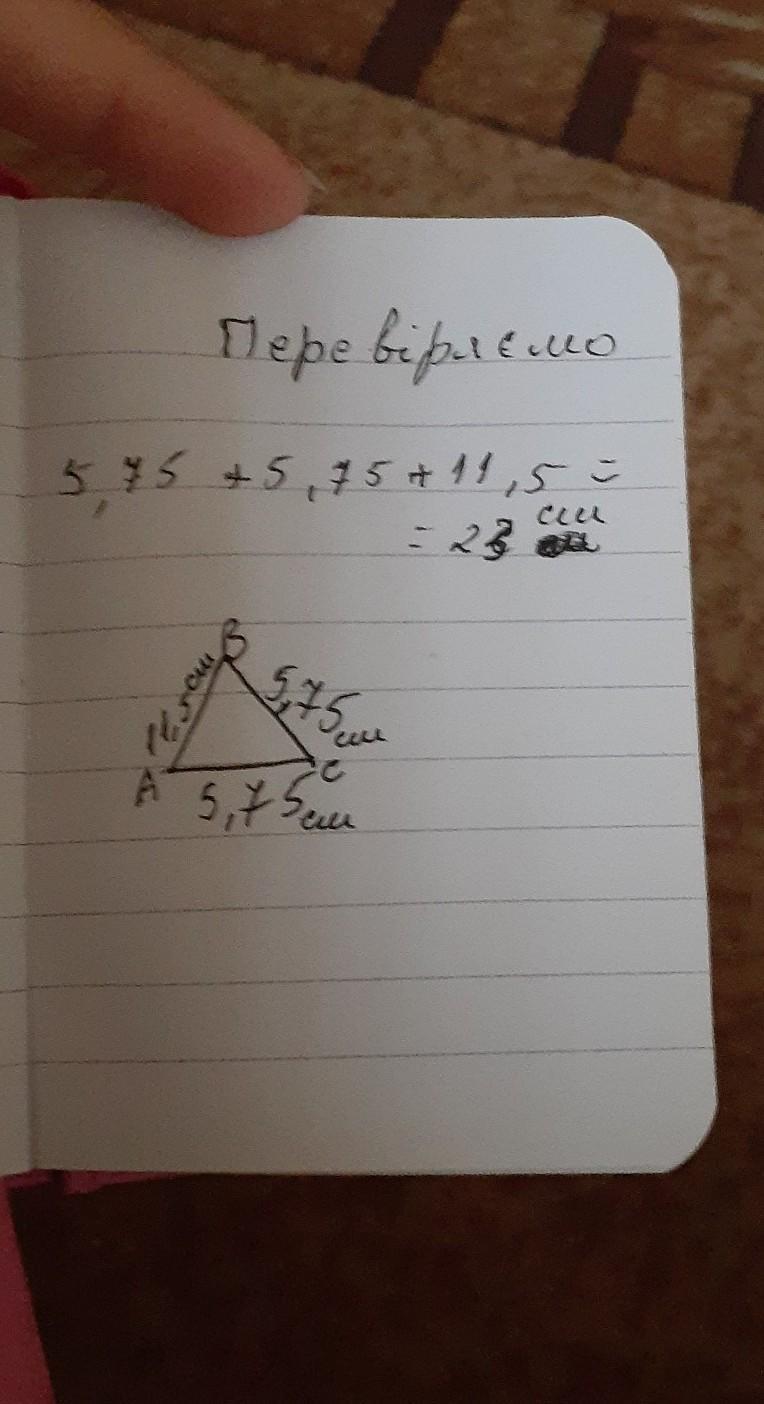 Перевіряємо
5,75 + 5,75 + 11,5 =
= 23 см
B
11,5 см
5,75 см
A
C
5,75 см